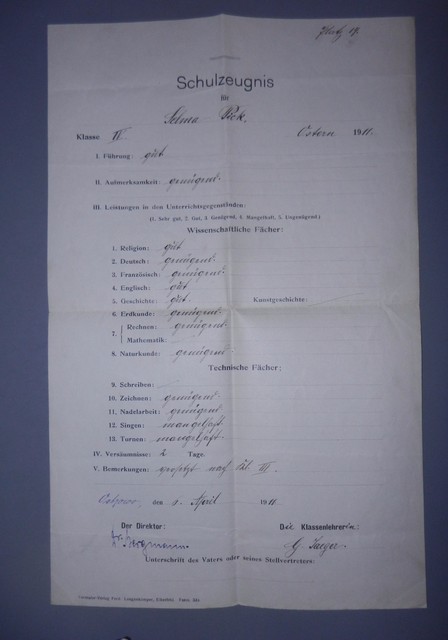 Schulzeugnis
für
Selma Pick.
Klasse II. Ostern 1911.
I. Führung: gut
II. Aufmerksamkeit: genügend.
III. Leistungen in den Unterrichtsgegenständen:
(1. Sehr gut, 2. Gut, 3. Genügend, 4. Mangelhaft, 5. Ungenügend.)
Wissenschaftliche Fächer:
1. Religion: gut
2. Deutsch: genügend.
3. Französisch: genügend.
4. Englisch: gut
5. Geschichte: gut. Kunstgeschichte:
6. Erdkunde: genügend.
7. Rechnen: genügend.
Mathematik:
8. Naturkunde: genügend.
Technische Fächer:
9. Schreiben:
10. Zeichnen: genügend.
11. Nadelarbeit: genügend.
12. Singen: mangelhaft.
13. Turnen: mangelhaft.
IV. Versäumnisse: 2 Tage.
V. Bemerkungen: nach III.
den 1. April 1911.
Der Direktor: Die Klassenlehrerin:
Bergmann. G. Jaeger.
Unterschrift des Vaters oder seines Stellvertreters: